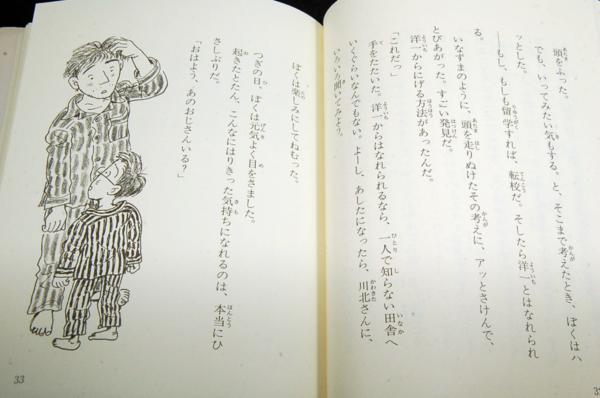 頭をふった。
でも、いってみたい気もする。と、そこまで考えたとき、ぼくはハ
ッとした。
――もし、もしも留学すれば、転校だ。そしたら洋一とはなれられ
る。
いなずまのように、頭を走りぬけたその考えに、アッとさけんで、
とびあがった。すごい発見だ。
洋一からにげる方法があったんだ。
「これだっ」
手をたたいた。洋一からはなれられるなら、一人で知らない田舎へ
いくぐらいなんでもない。よーし、あしたになったら、川北さんに、
いろいろ聞いてみよう。
ぼくは楽しみにしてねむった。
つぎの日、ぼくは元気よく目をさました。
起きたとたん、こんなにはりきった気持ちになれるのは、本当にひ
さしぶりだ。
「おはよう、あのおじさんいる？」
33